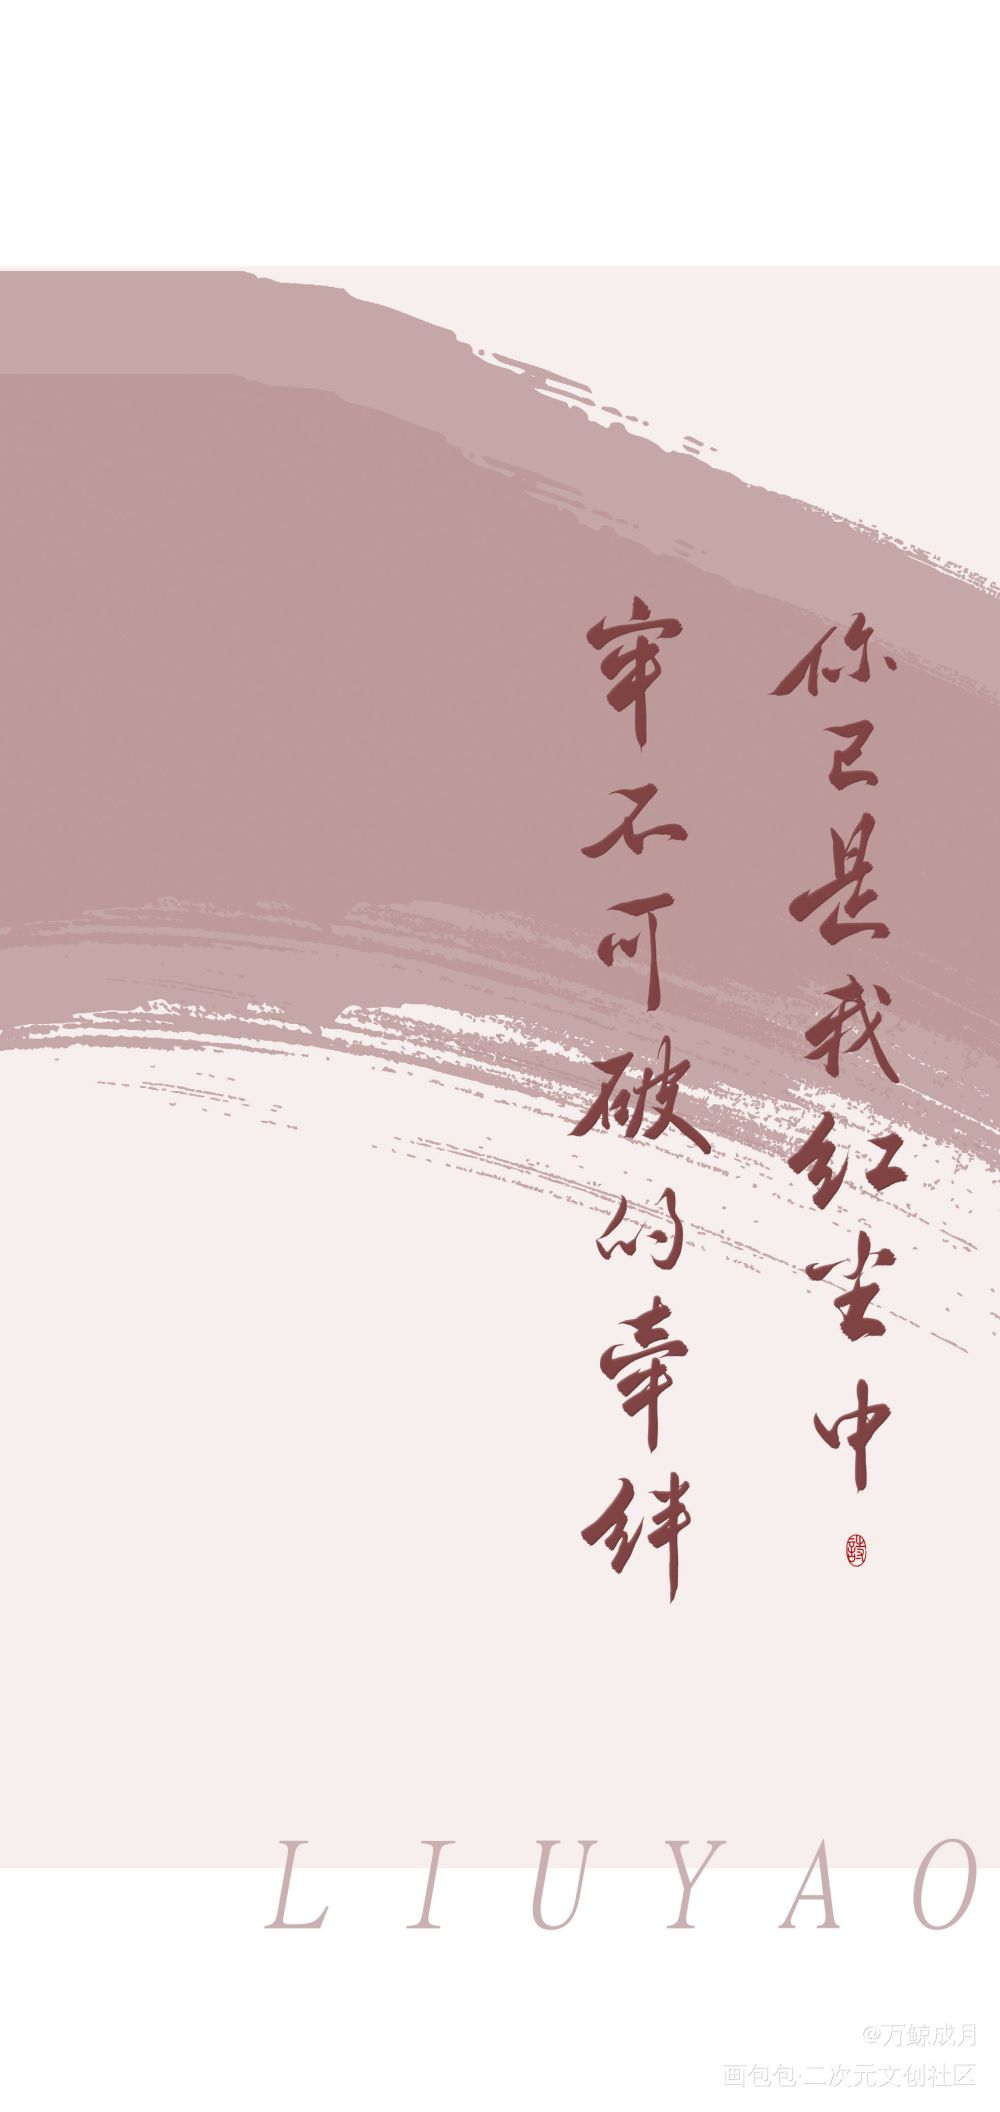 你已是我红尘中
牢不可破的牵绊
诗
LIUYAO
@万鲸成月
画包包·二次元文创社区